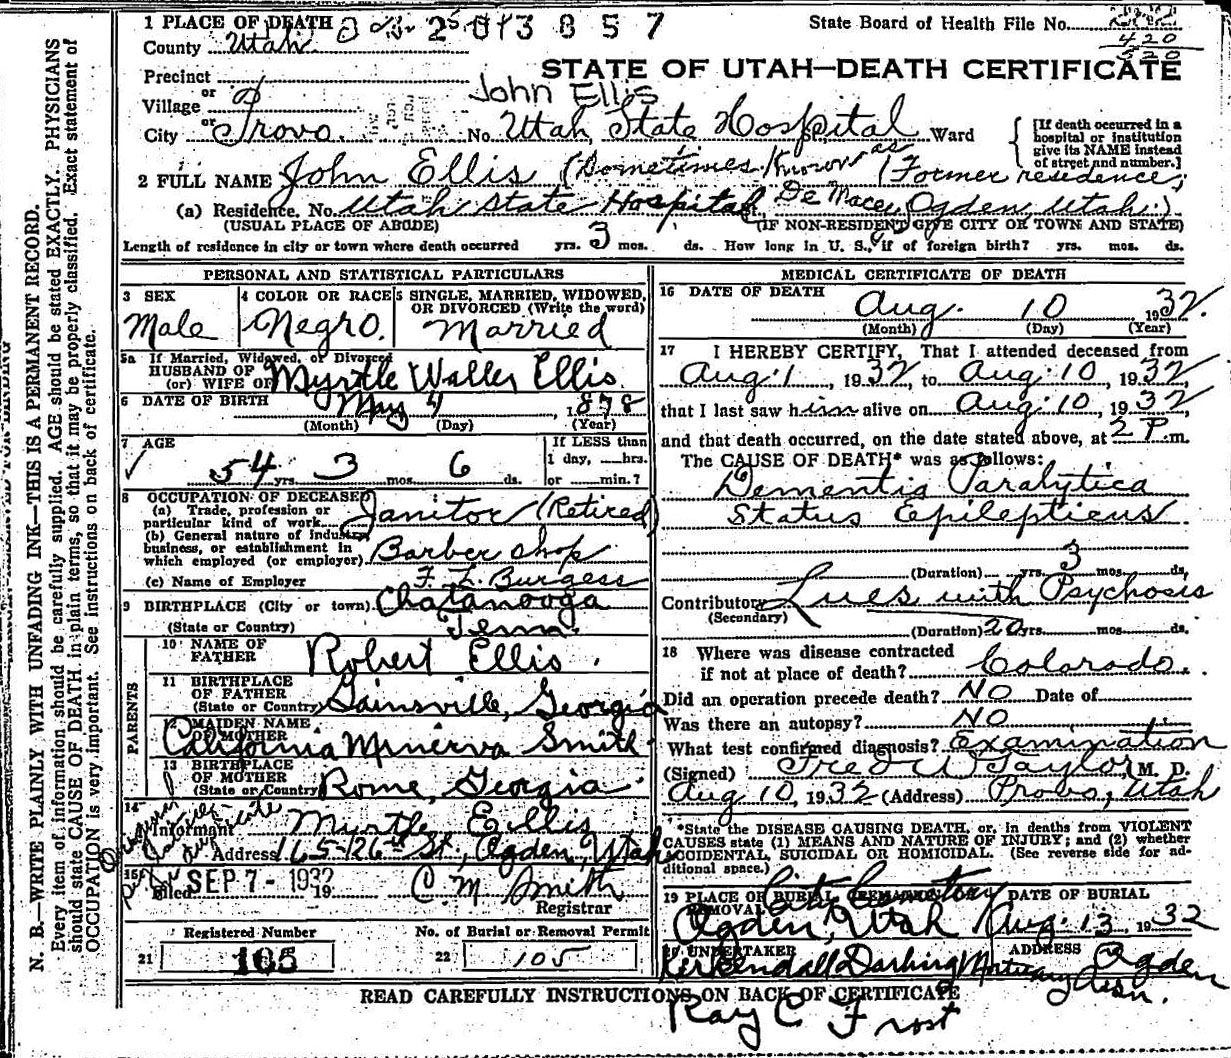 1 PLACE OF DEATH
State Board of Health File No.
420
520
County Utah
STATE OF UTAH—DEATH CERTIFICATE
Precinct
or
Village
John Ellis
City or Provo. No. Utah State Hospital Ward
[If death occurred in a
hospital or institution
give its NAME instead
of street and number.]
2 FULL NAME John Ellis (Sometimes Known as De Mace) (Former residence;
(a) Residence, No. Utah State Hospital Ogden, Utah.)
(USUAL PLACE OF ABODE) (IF NON-RESIDENT GIVE CITY OR TOWN AND STATE)
Length of residence in city or town where death occurred yrs. 3 mos. ds. How long in U. S., if of foreign birth? yrs. mos. ds.
PERSONAL AND STATISTICAL PARTICULARS
3 SEX
Male
4 COLOR OR RACE
Negro.
5 SINGLE, MARRIED, WIDOWED,
OR DIVORCED (Write the word)
Married
5a If Married, Widowed, or Divorced
HUSBAND OF
(or) WIFE OF Myrtle Waller Ellis
6 DATE OF BIRTH May 4, 1878
(Month) (Day) (Year)
7 AGE
54 yrs. 3 mos. 6 ds.
If LESS than
1 day, hrs.
or min.?
8 OCCUPATION OF DECEASED
(a) Trade, profession or
particular kind of work Janitor (Retired)
(b) General nature of industry,
business, or establishment in
which employed (or employer) Barber shop
(c) Name of Employer F. L. Burgess
9 BIRTHPLACE (City or town) Chatanooga
(State or Country) Tenn.
PARENTS
10 NAME OF
FATHER Robert Ellis.
11 BIRTHPLACE
OF FATHER
(State or Country) Gainsville, Georgia
12 MAIDEN NAME
OF MOTHER
California Minerva Smith
13 BIRTHPLACE
OF MOTHER
(State or Country) Rome, Georgia
14
Informant Myrtle Ellis
Address 165-126th St, Ogden, Utah
15 Filed SEP 7 - 1932 19 C. M. Smith
Registrar
Registered Number
21 105
No. of Burial or Removal Permit
22 105
MEDICAL CERTIFICATE OF DEATH
16 DATE OF DEATH
Aug. 10 1932.
(Month) (Day) (Year)
17 I HEREBY CERTIFY, That I attended deceased from
Aug. 1, 1932, to Aug. 10, 1932,
that I last saw him alive on Aug. 10, 1932,
and that death occurred, on the date stated above, at 2 P. m.
The CAUSE OF DEATH* was as follows:
Dementia Paralytica
Status Epilepticus
(Duration) yrs. 3 mos. ds.
Contributory Lues with Psychosis
(Secondary)
(Duration) 20 yrs. mos. ds.
18 Where was disease contracted
if not at place of death? Colorado.
Did an operation precede death? NO Date of
Was there an autopsy? NO
What test confirmed diagnosis? Examination
(Signed) Fred W Taylor, M. D.
Aug 10, 1932 (Address) Provo, Utah
*State the DISEASE CAUSING DEATH, or, in deaths from VIOLENT
CAUSES state (1) MEANS AND NATURE OF INJURY; and (2) whether
ACCIDENTAL, SUICIDAL OR HOMICIDAL. (See reverse side for ad-
ditional space.)
19 PLACE OF BURIAL REMOVAL City Cemetery
Ogden, Utah
DATE OF BURIAL
Aug. 13, 1932
20 UNDERTAKER
Kirkendall Darling Mortuary
ADDRESS
Ogden
Ray C Frost
READ CAREFULLY INSTRUCTIONS ON BACK OF CERTIFICATE
N. B.—WRITE PLAINLY WITH UNFADING INK—THIS IS A PERMANENT RECORD.
Every item of information should be carefully supplied. AGE should be stated EXACTLY. PHYSICIANS
should state CAUSE OF DEATH in plain terms, so that it may be properly classified. Exact statement of
OCCUPATION is very important. See instructions on back of certificate.